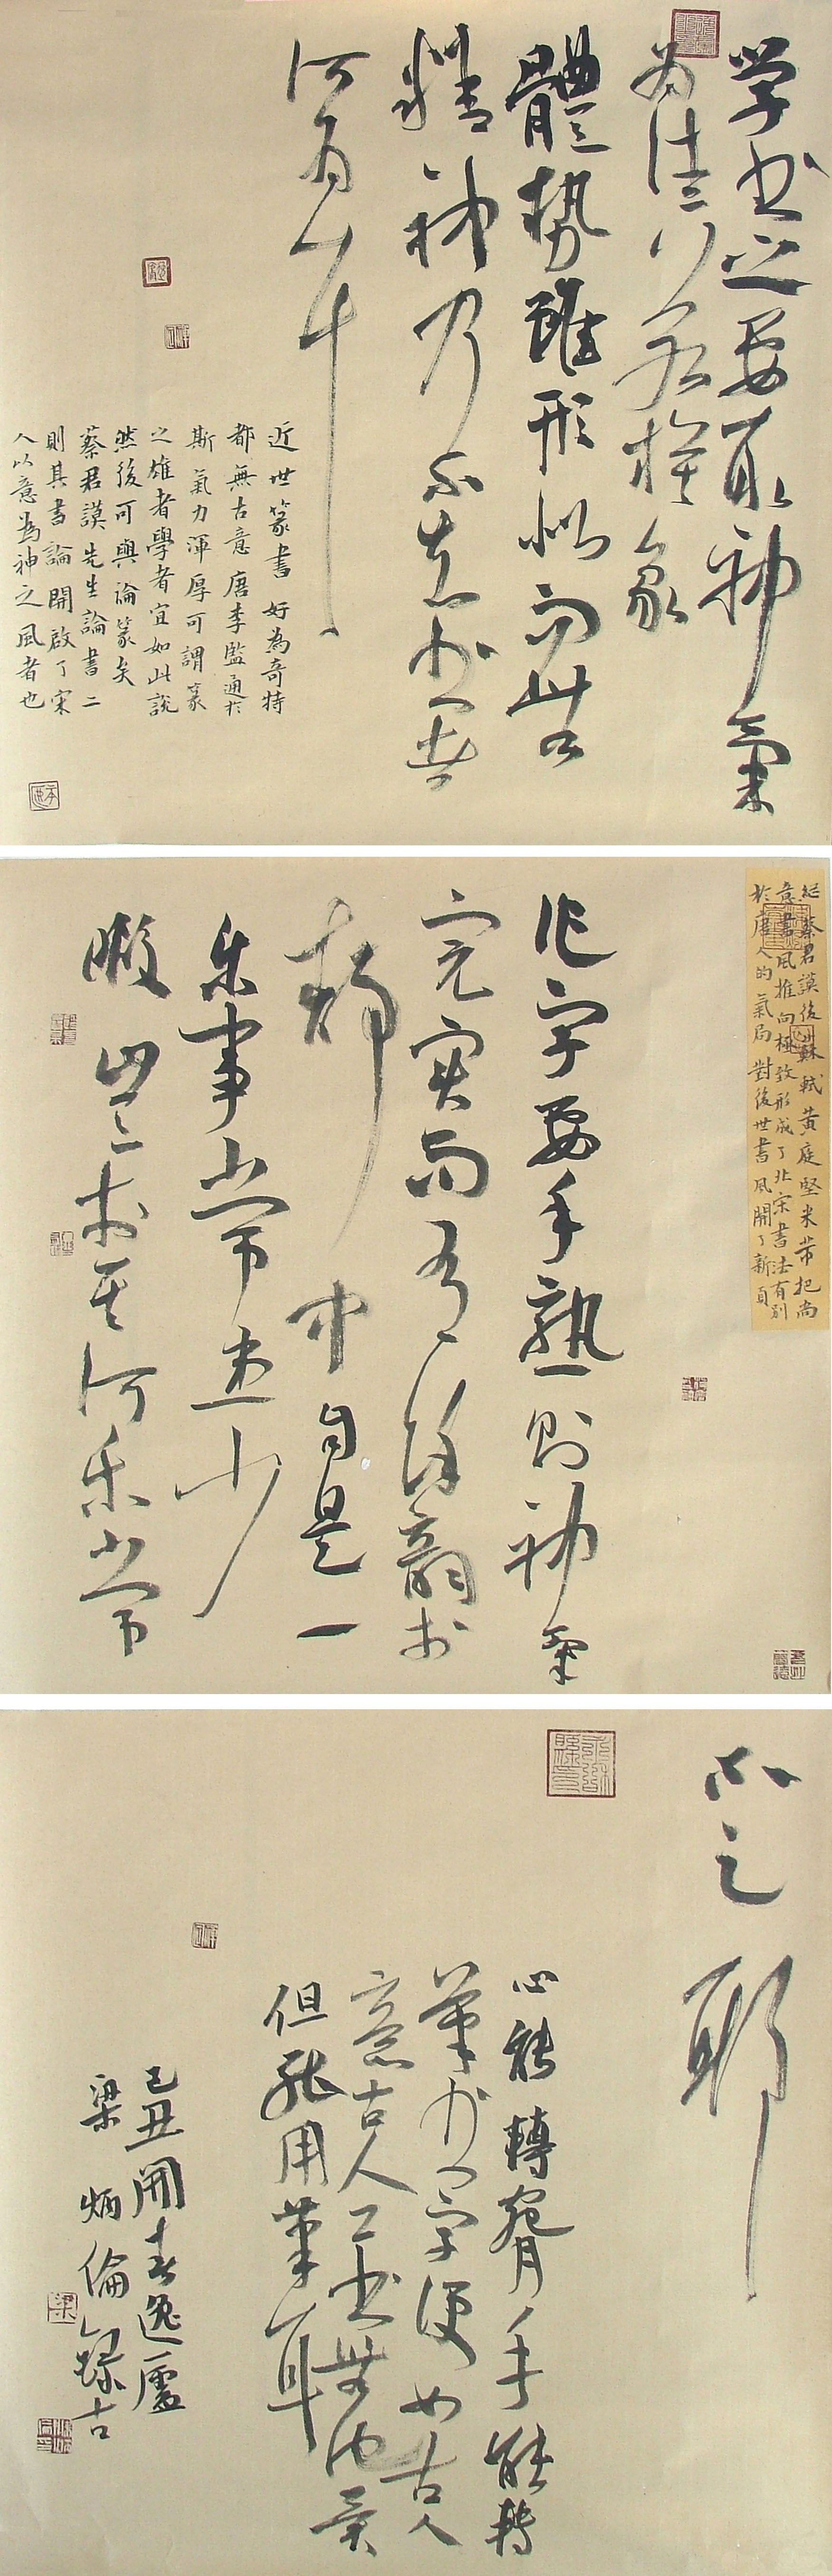 学书之要取神氣
为佳若模象
體势雖形似而无
精神乃不知书者
所为耳
近世篆書好為奇特
都無古意唐李監通於
斯氣力渾厚可謂篆
之雄者學者宜如此說
然後可與論篆矣
蔡君謨先生論書二
則其書論開啟了宋
人以意為神之風者也
從蔡君謨後蘇軾黃庭堅米芾把尚
意書風推向極致形成了北宋書法有别
於唐人的氣局對後世書風開了新頁
作字要手熟則神氣
完实而有餘韻於
静中自是一
乐事然常患少
暇岂於其所乐常
不足耶
心能轉腕手能轉
筆书字便如古人
意古人工书無他异
但能用筆耳
己丑開春逸廬
梁炳倫錄古